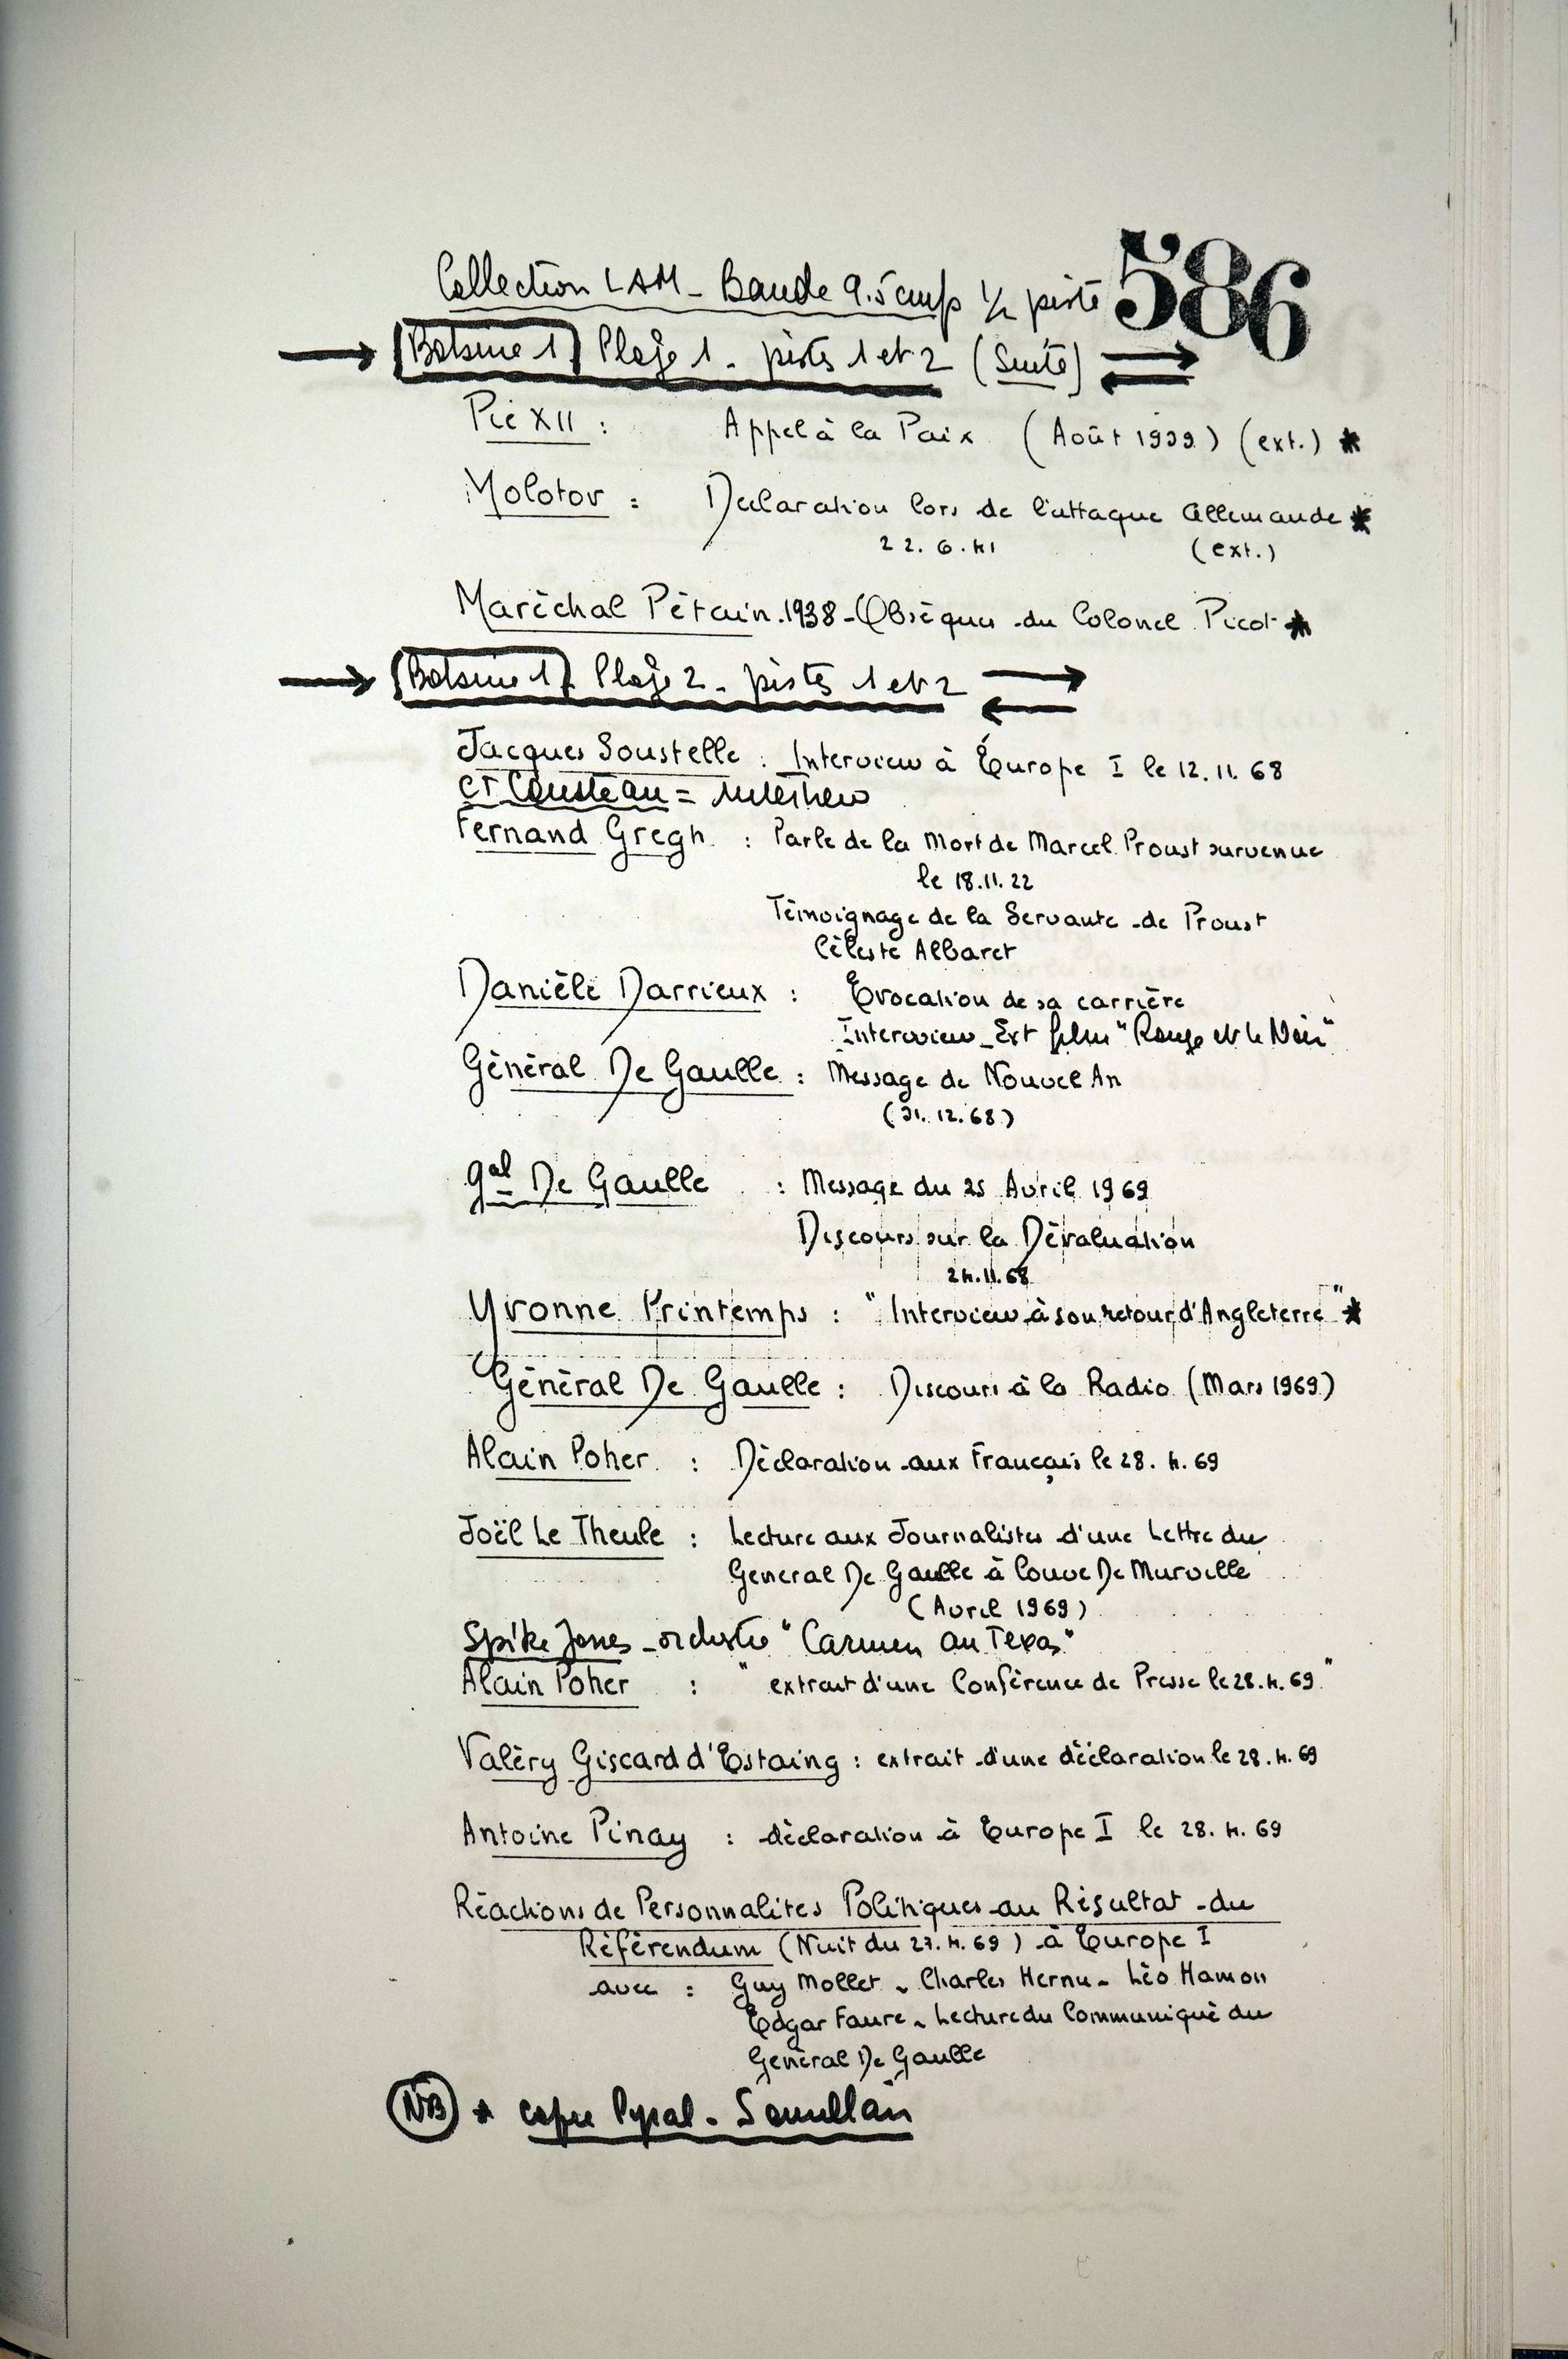 Collection LAM - Bande 9.5 cm/s 1/2 piste 586
→ Bobine 1 Plage 1 - pistes 1 et 2 (Suite)
Pie XII : Appel à la Paix (Août 1939) (ext.) *
Molotov : Declaration lors de l'attaque Allemande *
22.6.41 (ext.)
Maréchal Pétain. 1938 - Obsèques du Colonel Picot *
→ Bobine 1 Plage 2 - pistes 1 et 2
Jacques Soustelle : Interview à Europe I le 12.11.68
CT Cousteau = interview
Fernand Gregh : Parle de la Mort de Marcel Proust survenue
le 18.11.22
Témoignage de la Servante de Proust
Céleste Albaret
Danièle Darrieux : Evocation de sa carrière
Interview - Ext film "Rouge et le Noir"
Général De Gaulle : Message de Nouvel An
(31.12.68)
Gal De Gaulle : Message du 25 Avril 1969
Discours sur la Dévaluation
24.11.68
Yvonne Printemps : "Interview à son retour d'Angleterre" *
Général De Gaulle : Discours à la Radio (Mars 1969)
Alain Poher : Déclaration aux Français le 28.4.69
Joël Le Theule : Lecture aux Journalistes d'une Lettre du
General De Gaulle à Couve De Murville
(Avril 1969)
Spike Jones - orchestre "Carmen au Texas"
Alain Poher : "extrait d'une Conférence de Presse le 28.4.69"
Valéry Giscard d'Estaing : extrait d'une déclaration le 28.4.69
Antoine Pinay : déclaration à Europe I le 28.4.69
Réactions de Personnalités Politiques au Résultat du
Référendum (Nuit du 27.4.69) à Europe I
avec : Guy Mollet - Charles Hernu - Léo Hamon
Edgar Faure - Lecture du Communiqué du
Général De Gaulle
NB * copie Pyral -